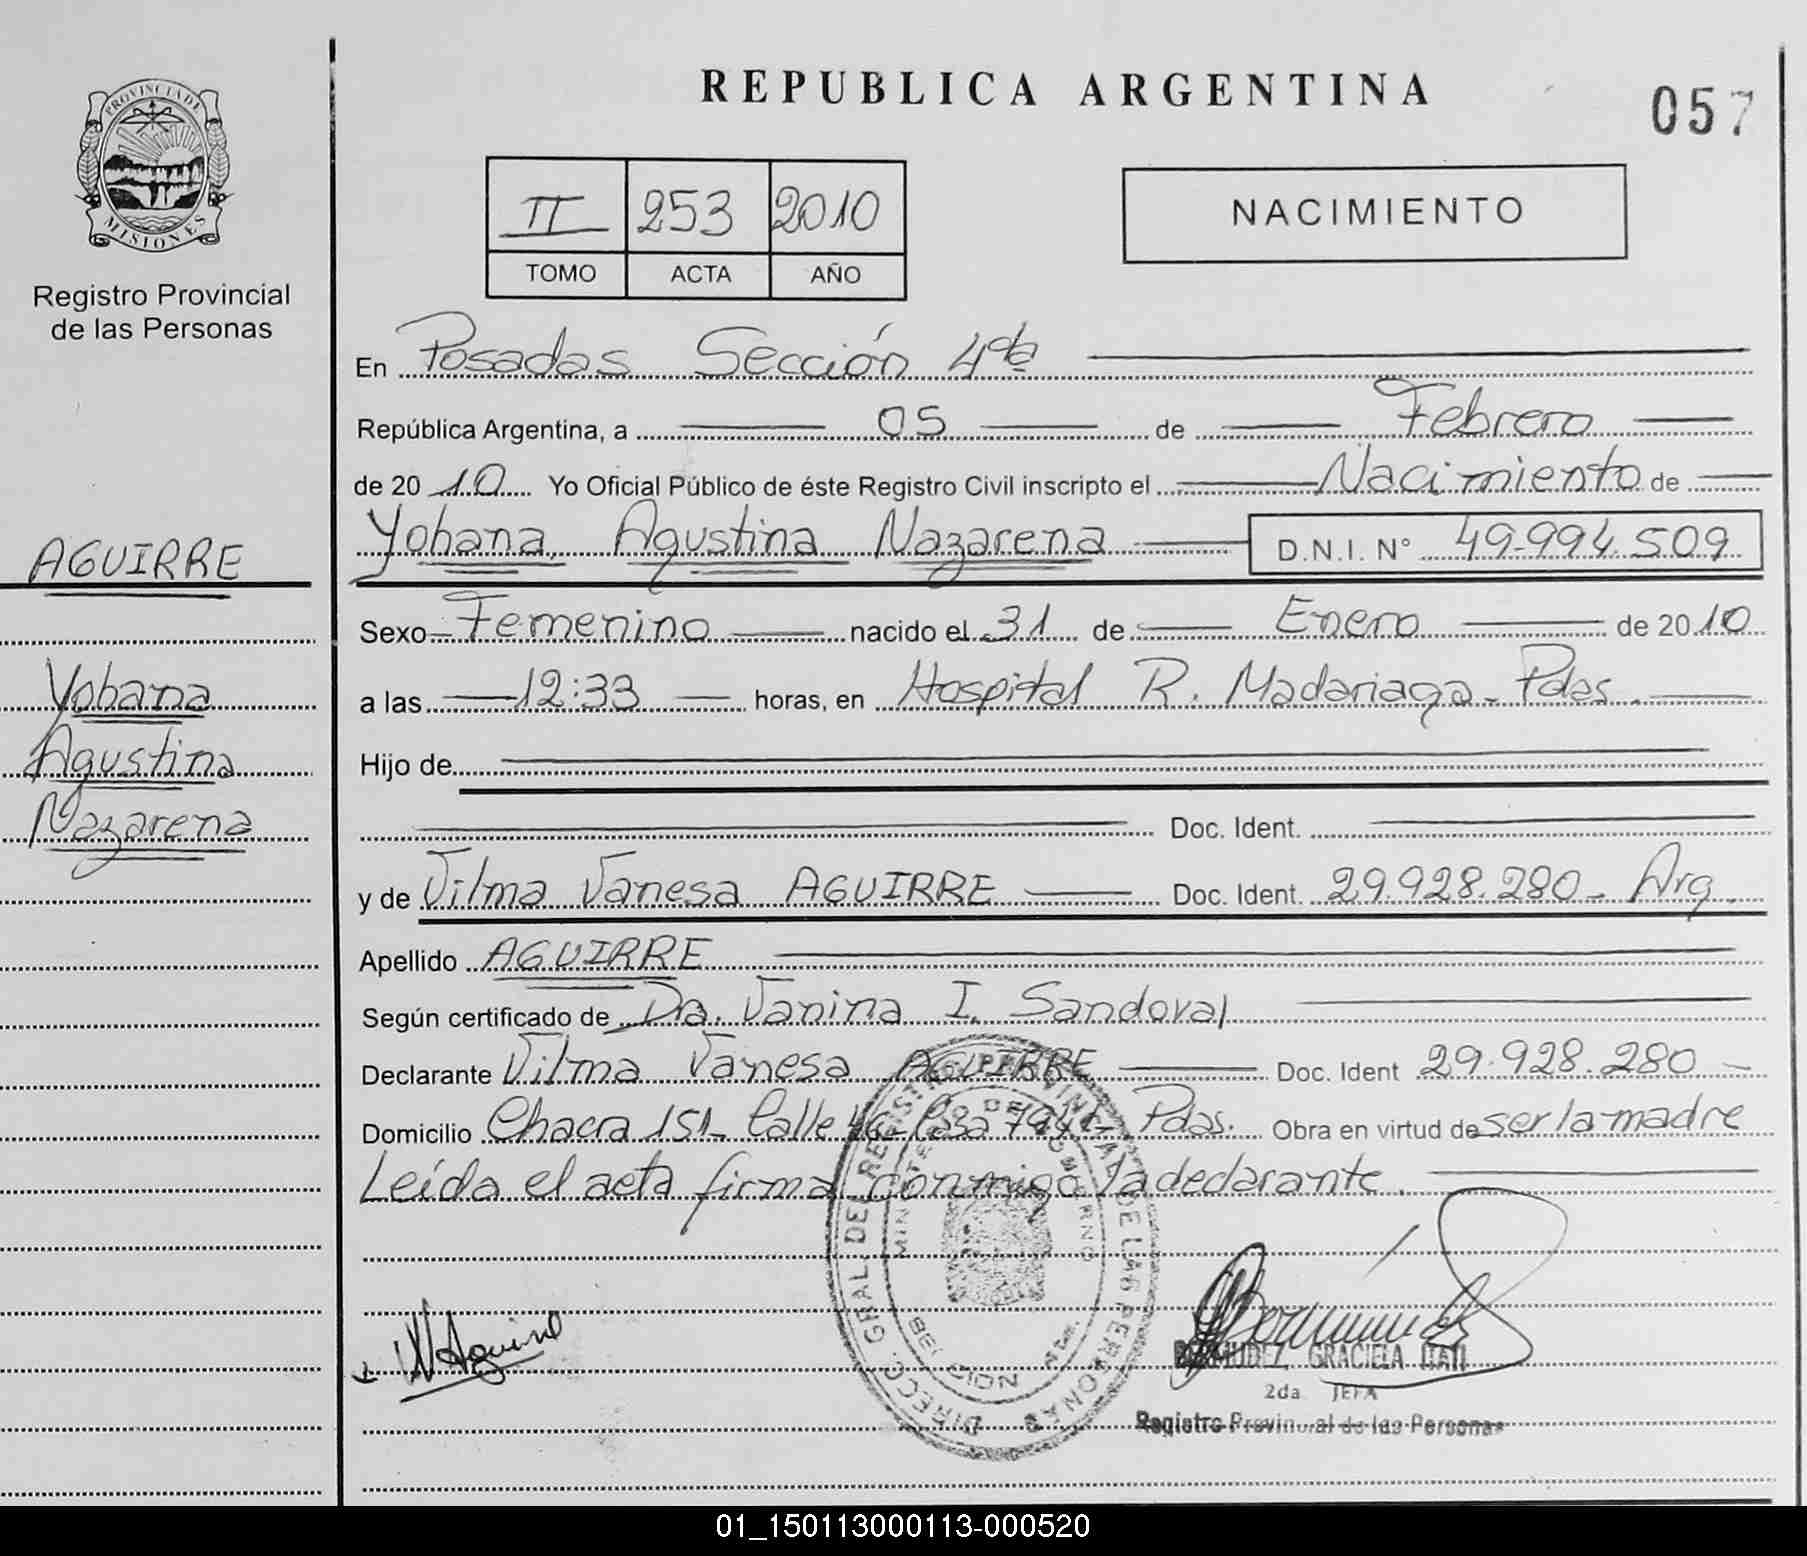 REPUBLICA ARGENTINA
057
PROVINCIA DE
MISIONES
Registro Provincial
de las Personas
II 253 2010
TOMO ACTA AÑO
NACIMIENTO
En Posadas Sección 4ta
República Argentina, a 05 de Febrero
de 2010 Yo Oficial Público de éste Registro Civil inscripto el Nacimiento de
Yohana Agustina Nazarena D.N.I. N° 49.994.509
AGUIRRE
Yohana
Agustina
Nazarena
Sexo Femenino nacido el 31 de Enero de 2010
a las 12:33 horas, en Hospital R. Madariaga - Pdas.
Hijo de
Doc. Ident.
y de Vilma Vanesa AGUIRRE Doc. Ident. 29.928.280 - Arg.
Apellido AGUIRRE
Según certificado de Dra. Vanina I. Sandoval
Declarante Vilma Vanesa AGUIRRE Doc. Ident 29.928.280 -
Domicilio Chacra 151 - Calle Casa Pdas. Obra en virtud de ser la madre
Leída el acta firma conmigo la declarante.
DIRECC. GRAL. DEL REGISTRO PROVINCIAL DE LAS PERSONAS
MINISTERIO DE GOBIERNO
V Aguirre
BERMUDEZ, GRACIELA ITATI
2da. JEFA
Registro Provincial de las Personas
01_150113000113-000520